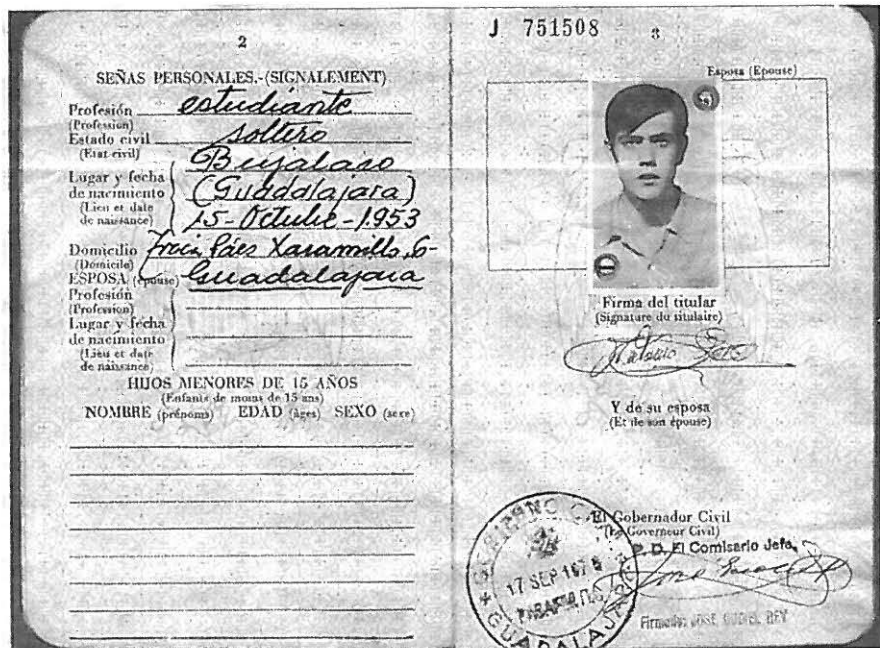 2
SEÑAS PERSONALES.-(SIGNALEMENT)
Profesión estudiante
(Profession)
Estado civil soltero
(Etat civil)
Lugar y fecha
de nacimiento
(Lieu et date
de naissance)
Bujalaro
(Guadalajara)
15-Octubre-1953
Domicilio Páez Xaramillo, 6-
(Domicile)
Guadalajara
ESPOSA (épouse)
Profesión
(Profession)
Lugar y fecha
de nacimiento
(Lieu et date
de naissance)
HIJOS MENORES DE 15 AÑOS
(Enfants de moins de 15 ans)
NOMBRE (prénoms) EDAD (âges) SEXO (sexe)
J 751508
3
Esposa (Epouse)
Firma del titular
(Signature du titulaire)
Y de su esposa
(Et de son épouse)
El Gobernador Civil
(Le Governeur Civil)
P. D. El Comisario Jefe,
GOBIERNO CIVIL
17 SEP
GUADALAJARA
Firmado: JOSE REY